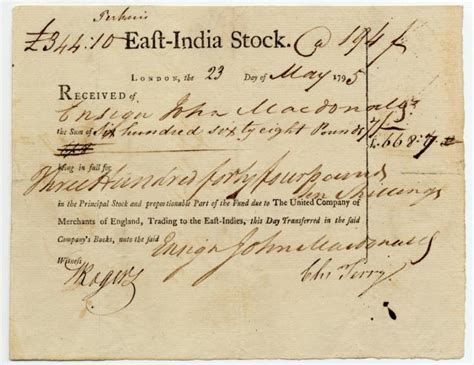 Perkins
£344:10 East-India Stock. @ 194
London, the 23 Day of May 1795
Received of Ensign John Macdonald
the Sum of Six hundred sixty eight Pounds 7/
£.668:7:
being in full for
Three Hundred forty four pounds
Ten Shillings
in the Principal Stock and proportionable Part of the Fund due to The United Company of
Merchants of England, Trading to the East-Indies, this Day Transferred in the said
Company's Books, unto the said Ensign John Macdonald
Witness
Rogers
Chs Terry